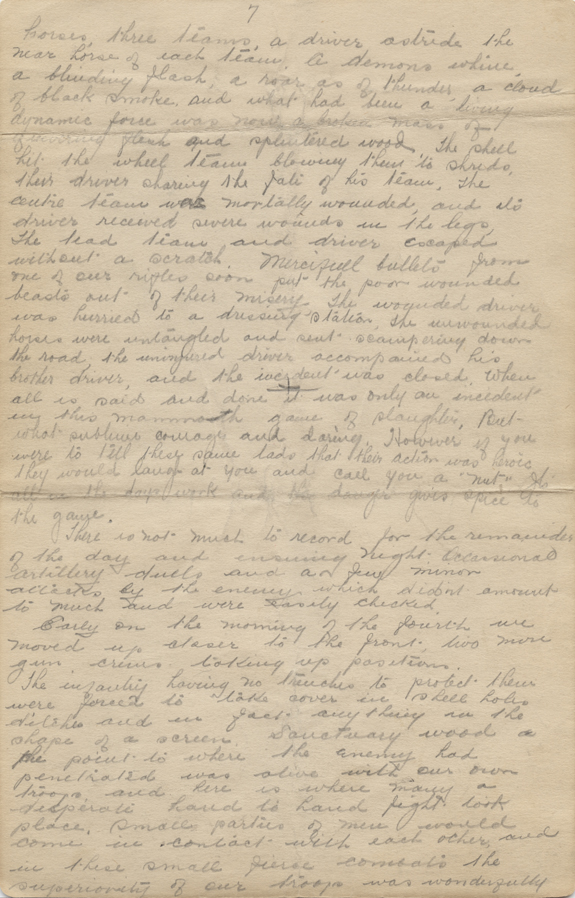 7
horses, three teams, a driver astride the
near horse of each team. A demons whine
a blinding flash, a roar as of thunder a cloud
of black smoke. and what had been a living
dynamic force was now a broken mass of
quivering flesh and splintered wood. The shell
hit the wheel team blowing them to shreds,
their driver sharing the fate of his team. The
centre team was mortally wounded, and its
driver received severe wounds in the legs,
The lead team and driver escaped
without a scratch. Mercifull bullets from
one of our rifles soon put the poor wounded
beasts out of their misery. The wounded driver
was hurried to a dressing station, the unwounded
horses were untangled and sent scampering down
the road, the uninjured driver accompanied his
brother driver, and the incident was closed. When
all is said and done it was only an incident
in this mammoth game of slaughter, But
what sublime courage and daring. However if you
were to tell these same lads that their action was heroic
they would laugh at you and call you a "nut" Its
all in the days work and the danger gives spice to
the game.
There is not much to record for the remainder
of the day and ensuing night. Occasional
artillery duels and a few minor
attacks by the enemy which didnt amount
to much and were easily checked.
Early on the morning of the fourth we
moved up closer to the front, two more
gun crews taking up positions.
The infantry having no trenches to protect them
were forced to take cover in shell holes
ditches and in fact anything in the
shape of a screen. Sanctuary wood a
the point to where the enemy had
penetrated was alive with our own
troops and here is where many a
desperate hand to hand fight took
place. Small parties of men would
come in contact with each other, and
in these small fierce combats the
superiority of our troops was wonderfully